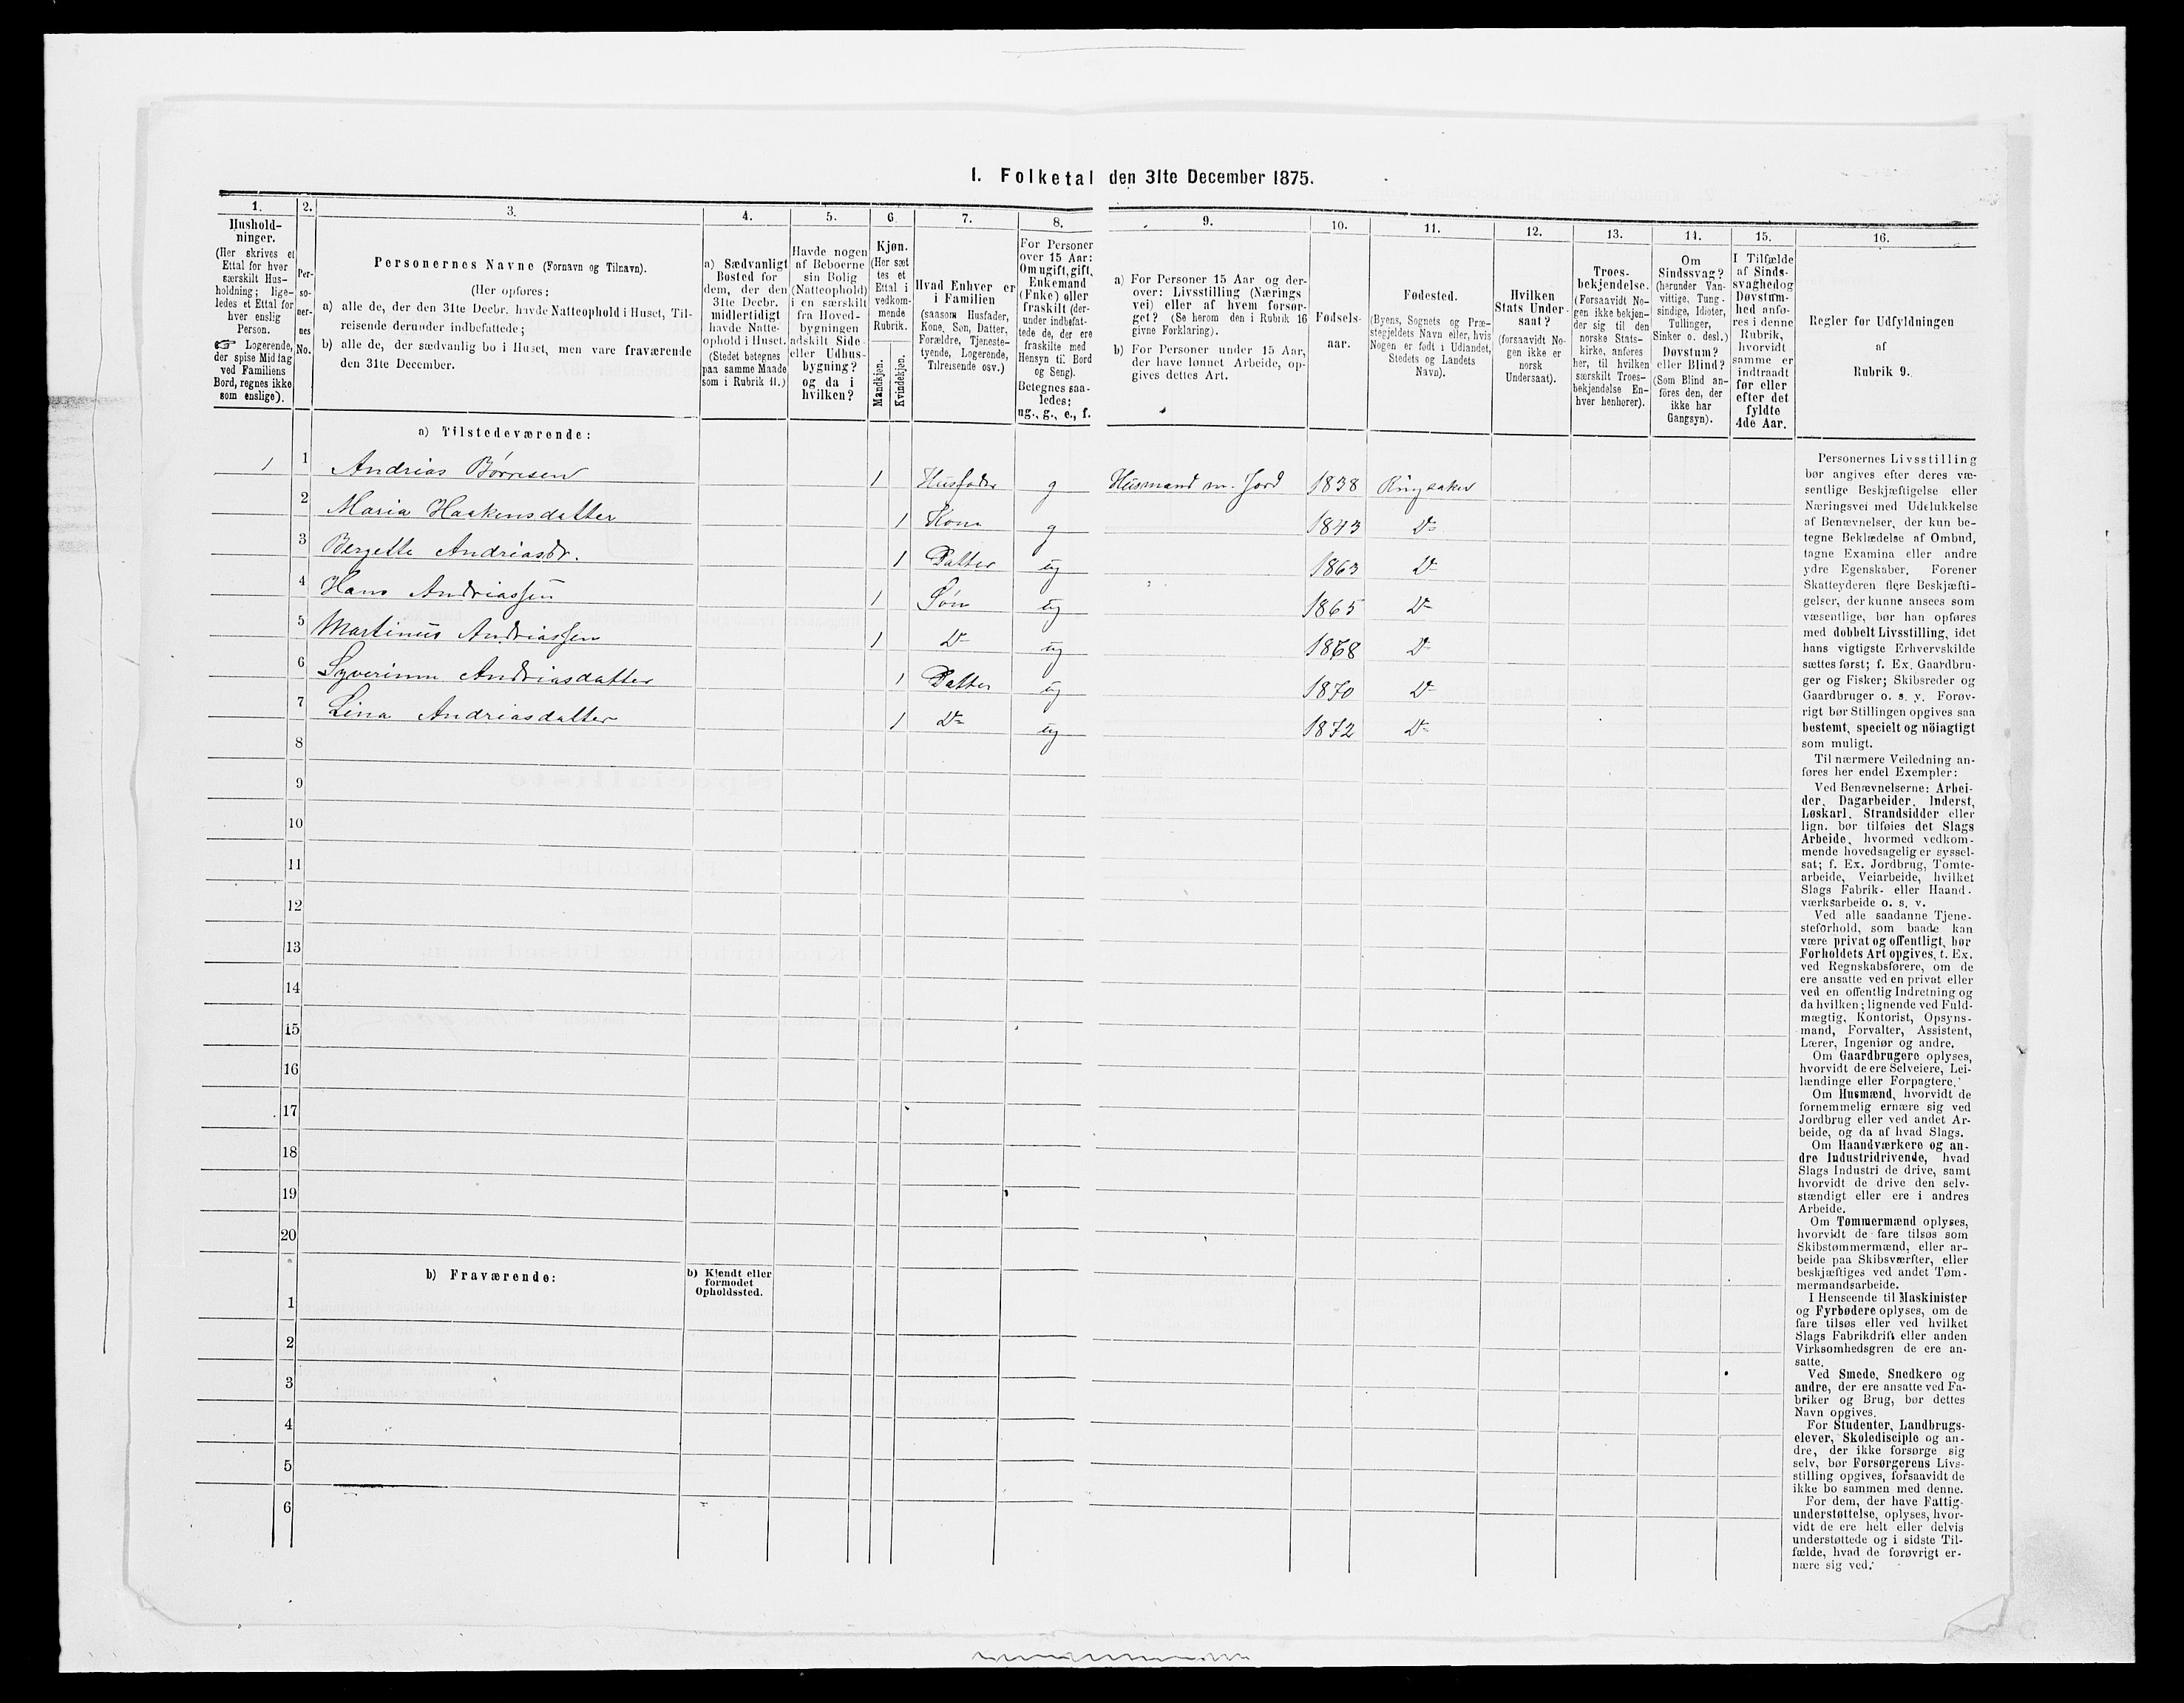 I. Folketal den 31te December 1875.
1. 2. 3. 4. 5. 6. 7. 8. 9. 10. 11. 12. 13. 14. 15. 16.
Hushold-
ninger.
(Her skrives et
Ettal for hver
særskilt Hus-
holdning; lige-
ledes et Ettal for
hver enslig
Person.
☞ Logerende,
der spise Middag
ved Familiens
Bord, regnes ikke
som enslige).
Per-
so-
ner-
nes
No.
Personernes Navne (Fornavn og Tilnavn).
(Her opføres:
a) alle de, der den 31te Decbr. havde Natteophold i Huset, Til-
reisende derunder indbefattede;
b) alle de, der sædvanlig bo i Huset, men vare fraværende
den 31te December.
a) Sædvanligt
Bosted for
dem, der den
31te Decbr.
midlertidigt
havde Natte-
ophold i Huset.
(Stedet betegnes
paa samme Maade
som i Rubrik 11.)
Havde nogen
af Beboerne
sin Bolig
(Natteophold)
i en særskilt
fra Hoved-
bygningen
adskilt Side-
eller Udhus-
bygning?
og da i
hvilken?
Kjøn.
(Her sæt
tes et
Ettal i
vedkom-
mende
Rubrik.
Mandkjøn.
Kvindekjøn.
Hvad Enhver er
i Familien
(saasom Husfader,
Kone, Søn, Datter,
Forældre, Tjeneste-
tyende, Logerende,
Tilreisende osv.)
For Personer
over 15 Aar:
Om ugift, gift,
Enkemand
(Enke) eller
fraskilt (der-
under indbefat-
tede de, der ere
fraskilte med
Hensyn til Bord
og Seng).
Betegnes saa-
ledes:
ug., g., e., f.
a) For Personer 15 Aar og der-
over: Livsstilling (Nærings
vei) eller af hvem forsør-
get? (Se herom den i Rubrik 16
givne Forklaring).
b) For Personer under 15 Aar,
der have lønnet Arbeide, op-
gives dettes Art.
Fødsels-
aar.
Fødested.
(Byens, Sognets og Præ-
stegjeldets Navn eller, hvis
Nogen er født i Udlandet,
Stedets og Landets
Navn).
Hvilken
Stats Under-
saat?
(forsaavidt No-
gen ikke er
norsk
Undersaat).
Troes-
bekjendelse.
(Forsaavidt No-
gen ikke bekjen-
der sig til den
norske Stats-
kirke, anføres
her, til hvilken
særskilt Troes-
bekjendelse En-
hver henhører).
Om
Sindssvag?
(herunder Van-
vittige, Tung-
sindige, Idioter,
Tullinger,
Sinker o. desl.)
Døvstum?
eller Blind?
(Som Blind an-
føres den, der
ikke har
Gangsyn).
I Tilfælde
af Sinds-
svaghed og
Døvstum-
hed anfø-
res i denne
Rubrik,
hvorvidt
samme er
indtraadt
før eller
efter det
fyldte
4de Aar.
Regler for Udfyldningen
af
Rubrik 9.
a) Tilstedeværende:
1 1 Andrias Børresen 1 Husfader g Husmand m. Jord 1838 Ringsaker
2 Maria Haakensdatter 1 Kone g 1843 Do
3 Bergette Andriasdr. 1 Datter ug 1863 Do
4 Hans Andriassen 1 Søn ug 1865 Do
5 Martinus Andriassen 1 Do ug 1868 Do
6 Syverinne Andriasdatter 1 Datter ug 1870 Do
7 Lina Andriasdatter 1 Do ug 1872 Do
8
9
10
11
12
13
14
15
16
17
18
19
20
b) Fraværende:
b) Kjendt eller
formodet
Opholdssted.
1
2
3
4
5
6
Personernes Livsstilling
bør angives efter deres væ-
sentlige Beskjæftigelse eller
Næringsvei med Udelukkelse
af Benævnelser, der kun be-
tegne Beklædelse af Ombud,
tagne Examina eller andre
ydre Egenskaber. Forener
Skatteyderen flere Beskjæfti-
gelser, der kunne ansees som
væsentlige, bør han opføres
med dobbelt Livsstilling, idet
hans vigtigste Erhvervskilde
sættes først; f. Ex. Gaardbru-
ger og Fisker; Skibsreder og
Gaardbruger o. s. v. Forøv-
rigt bør Stillingen opgives saa
bestemt, specielt og nöiagtigt
som muligt.
Til nærmere Veiledning an-
føres her endel Exempler:
Ved Benævnelserne: Arbei-
der, Dagarbeider, Inderst,
Løskarl, Strandsidder eller
lign. bør tilføies det Slags
Arbeide, hvormed vedkom-
mende hovedsagelig er syssel-
sat; f. Ex. Jordbrug, Tomte-
arbeide, Veiarbeide, hvilket
Slags Fabrik- eller Haand-
værksarbeide o. s. v.
Ved alle saadanne Tjene-
steforhold, som baade kan
være privat og offentligt, bør
Forholdets Art opgives, f. Ex.
ved Regnskabsførere, om de
ere ansatte ved en privat eller
ved en offentlig Indretning og
da hvilken; lignende ved Fuld-
mægtig, Kontorist, Opsyns-
mand, Forvalter, Assistent,
Lærer, Ingeniør og andre.
Om Gaardbrugere oplyses,
hvorvidt de ere Selveiere, Lei-
lændinge eller Forpagtere.
Om Husmænd, hvorvidt de
fornemmelig ernære sig ved
Jordbrug eller ved andet Ar-
beide, og da af hvad Slags.
Om Haandværkere og an-
dre Industridrivende, hvad
Slags Industri de drive, samt
hvorvidt de drive den selv-
stændigt eller ere i andres
Arbeide.
Om Tømmermænd oplyses,
hvorvidt de fare tilsøs som
Skibstømmermænd, eller ar-
beide paa Skibsværfter, eller
beskjæftiges ved andet Tøm-
mermandsarbeide.
I Henseende til Maskinister
og Fyrbødere oplyses, om de
fare tilsøs eller ved hvilket
Slags Fabrikdrift eller anden
Virksomhedsgren de ere an-
satte.
Ved Smede, Snedkere og
andre, der ere ansatte ved Fa-
briker og Brug, bør dettes
Navn opgives.
For Studenter, Landbrugs-
elever, Skoledisciple og an-
dre, der ikke forsørge sig
selv, bør Forsørgerens Livs-
stilling opgives, forsaavidt de
ikke bo sammen med denne.
For dem, der have Fattig-
understøttelse, oplyses, hvor-
vidt de ere helt eller delvis
understøttede og i sidste Til-
fælde, hvad de forøvrigt er-
nære sig ved.